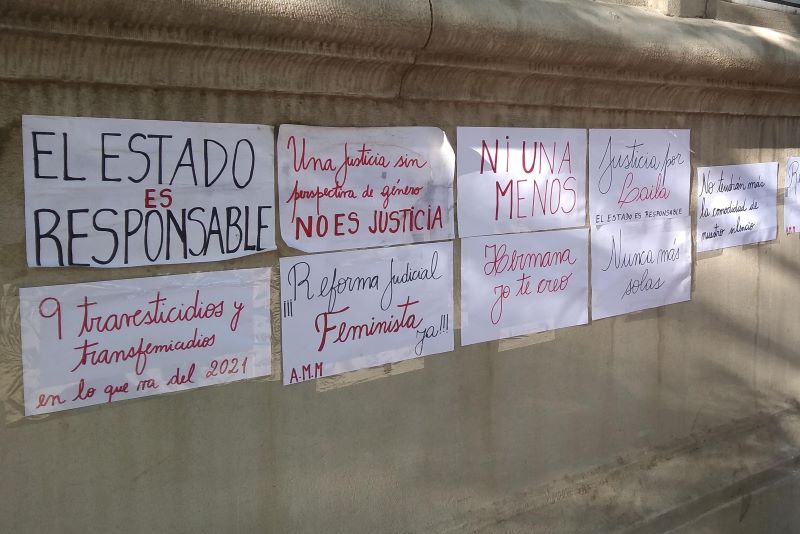 EL ESTADO
ES
RESPONSABLE
Una Justicia sin
perspectiva de género
NO ES JUSTICIA
NI UNA
MENOS
Justicia por
Laila
EL ESTADO ES RESPONSABLE
No tendrán más
la comodidad de
nuestro silencio
9 travesticidios y
transfemicidios
en lo que va del 2021
¡¡¡Reforma Judicial
Feminista
ya!!!
A.M.M
Hermana
yo te creo
Nunca más
solas